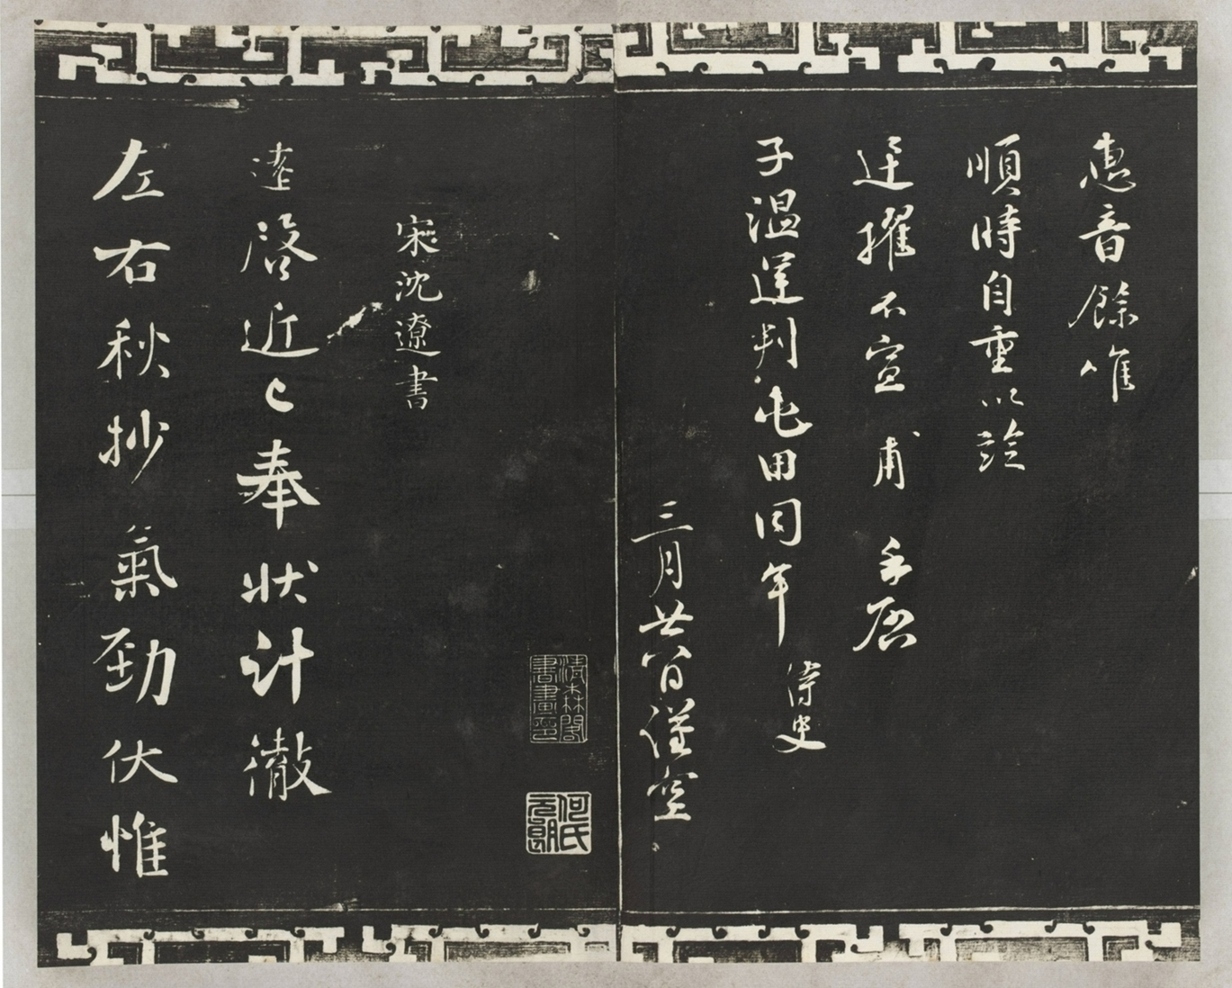 惠音餘惟
順時自重以詮
迋擢不宣 甫 手啓
子溫運判屯田同年 侍史
三月廿八日謹空
清森閣書畫印
何氏元朗
宋沈遼書
遼啓近已奉狀計澈
左右秋抄氣勁伏惟